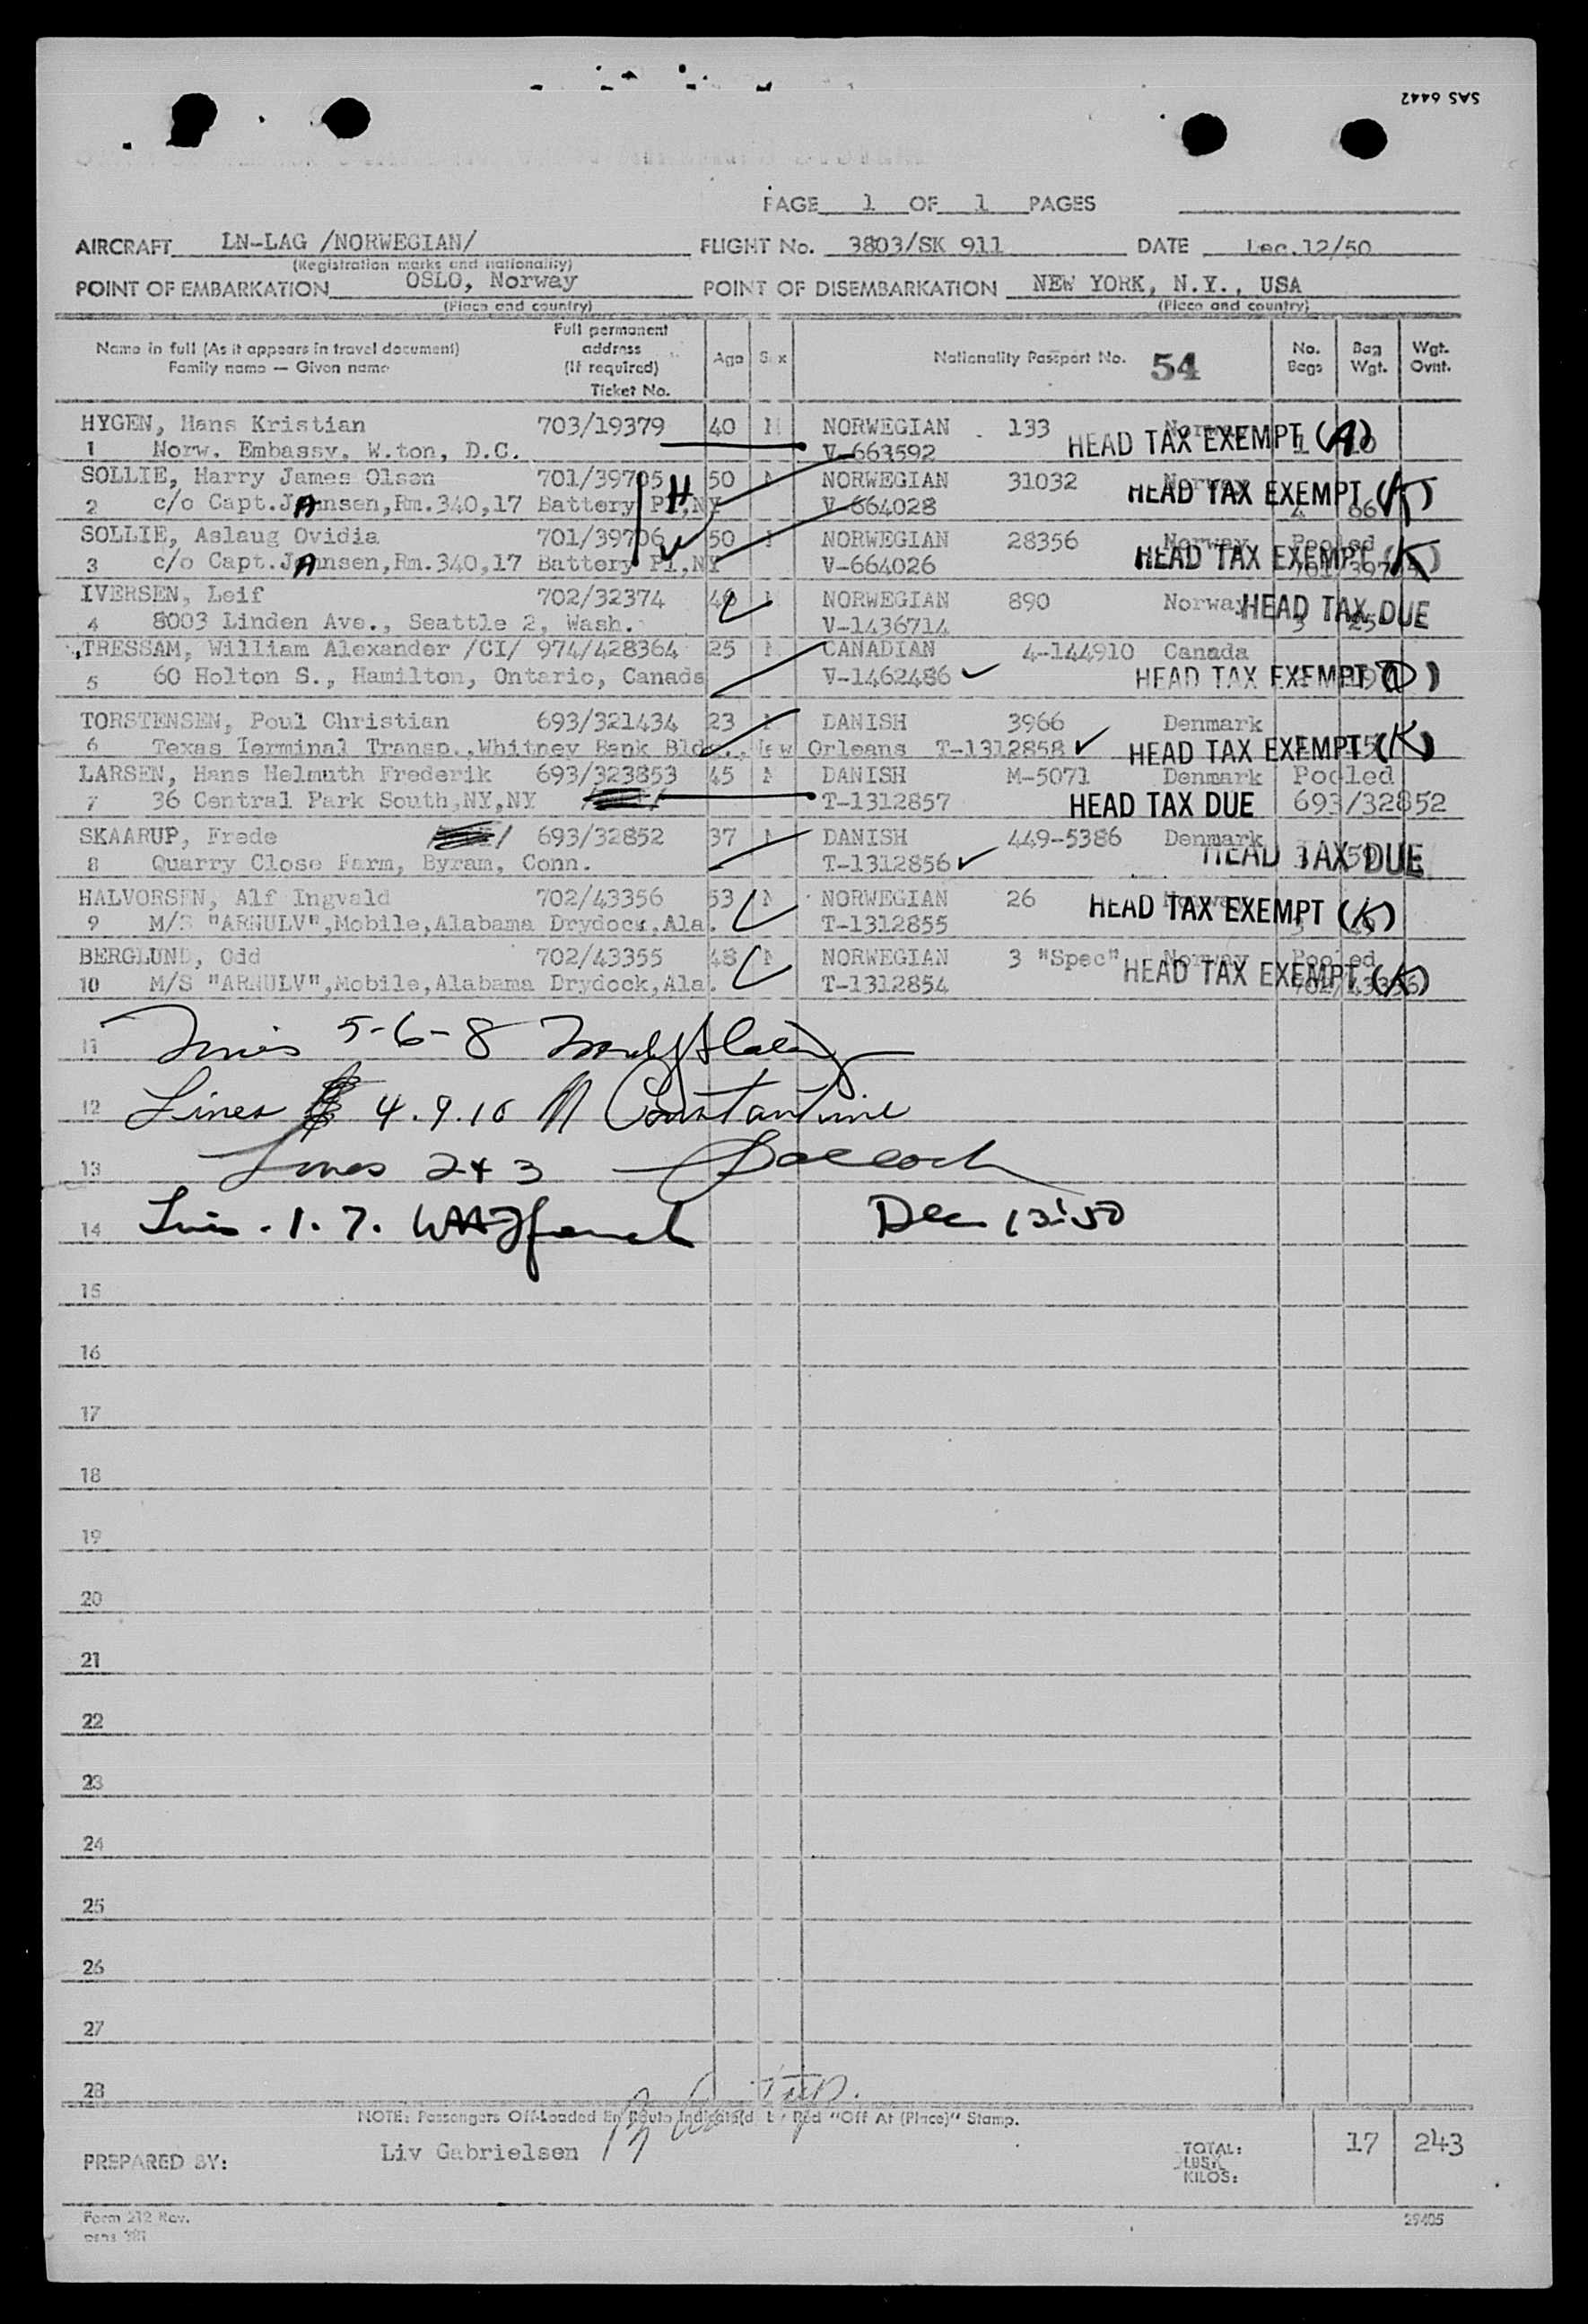 SAS 6442
PAGE 1 OF 1 PAGES
AIRCRAFT LN-LAG /NORWEGIAN/ FLIGHT No. 3803/SK 911 DATE Dec.12/50
(Registration marks and nationality)
POINT OF EMBARKATION OSLO, Norway POINT OF DISEMBARKATION NEW YORK, N.Y., USA
(Place and country) (Place and country)
Name in full (As it appears in travel document) Family name — Given name Full permanent address (If required) Ticket No. Age Sex Nationality Passport No. 54 No. Bags Bag Wgt. Wgt. Ovnt.
HYGEN, Hans Kristian 703/19379 40 M NORWEGIAN 133 Norway HEAD TAX EXEMPT (A)
1 Norw. Embassy, W.ton, D.C. V-663592
SOLLIE, Harry James Olsen 701/39705 50 M NORWEGIAN 31032 Norway HEAD TAX EXEMPT (K)
2 c/o Capt.JAnnsen,Rm.340,17 Battery Pl,NY V-664028 4 66
H
SOLLIE, Aslaug Ovidia 701/39706 50 NORWEGIAN 28356 Norway Pooled HEAD TAX EXEMPT (K)
3 c/o Capt.JAnnsen,Rm.340,17 Battery Pl,NY V-664026 701/39705
IVERSEN, Leif 702/32374 46 NORWEGIAN 890 Norway HEAD TAX DUE
4 8003 Linden Ave., Seattle 2, Wash. V-1436714 3 25
TRESSAM, William Alexander /CI/ 974/428364 25 M CANADIAN 4-144910 Canada
5 60 Holton S., Hamilton, Ontario, Canada V-1462486 HEAD TAX EXEMPT
TORSTENSEN, Poul Christian 693/321434 23 DANISH 3966 Denmark
6 Texas Terminal Transp.,Whitney Bank Bldg., New Orleans T-1312858 HEAD TAX EXEMPT (K)
LARSEN, Hans Helmuth Frederik 693/323853 45 M DANISH M-5071 Denmark Pooled
7 36 Central Park South,NY,NY T-1312857 HEAD TAX DUE 693/32852
SKAARUP, Frede 693/32852 37 M DANISH 449-5386 Denmark
8 Quarry Close Farm, Byram, Conn. T-1312856 HEAD TAX DUE
HALVORSEN, Alf Ingvald 702/43356 53 M NORWEGIAN 26 Norway HEAD TAX EXEMPT (K)
9 M/S "ARNULV",Mobile,Alabama Drydock,Ala. T-1312855
BERGLUND, Odd 702/43355 48 M NORWEGIAN 3 "Spec" Norway Pooled HEAD TAX EXEMPT (K)
10 M/S "ARNULV",Mobile,Alabama Drydock,Ala. T-1312854 702/43356
11 Lines 5-6-8
12 Lines 4.9.10 M Constantine
13 Lines 2 + 3
14 Lines 1. 7. Dec 12 '50
15
16
17
18
19
20
21
22
23
24
25
26
27
28
NOTE: Passengers Off-Loaded En Route Indicated by Red "Off At (Place)" Stamp.
PREPARED BY: Liv Gabrielsen TOTAL: LBS. KILOS: 17 243
Form 212 Rev. 29405